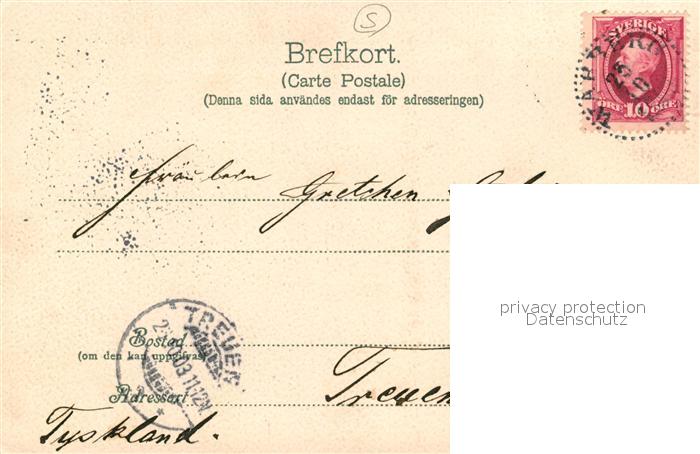 S
Brefkort.
(Carte Postale)
(Denna sida användes endast för adresseringen)
SVERIGE
ÖRE 10 ÖRE
25
Fräulein Gretchen
privacy protection
Datenschutz
TREUEN
03.11-12V
Bostad
(om den kan uppgifvas)
Adressort
Treuen
Tyskland.